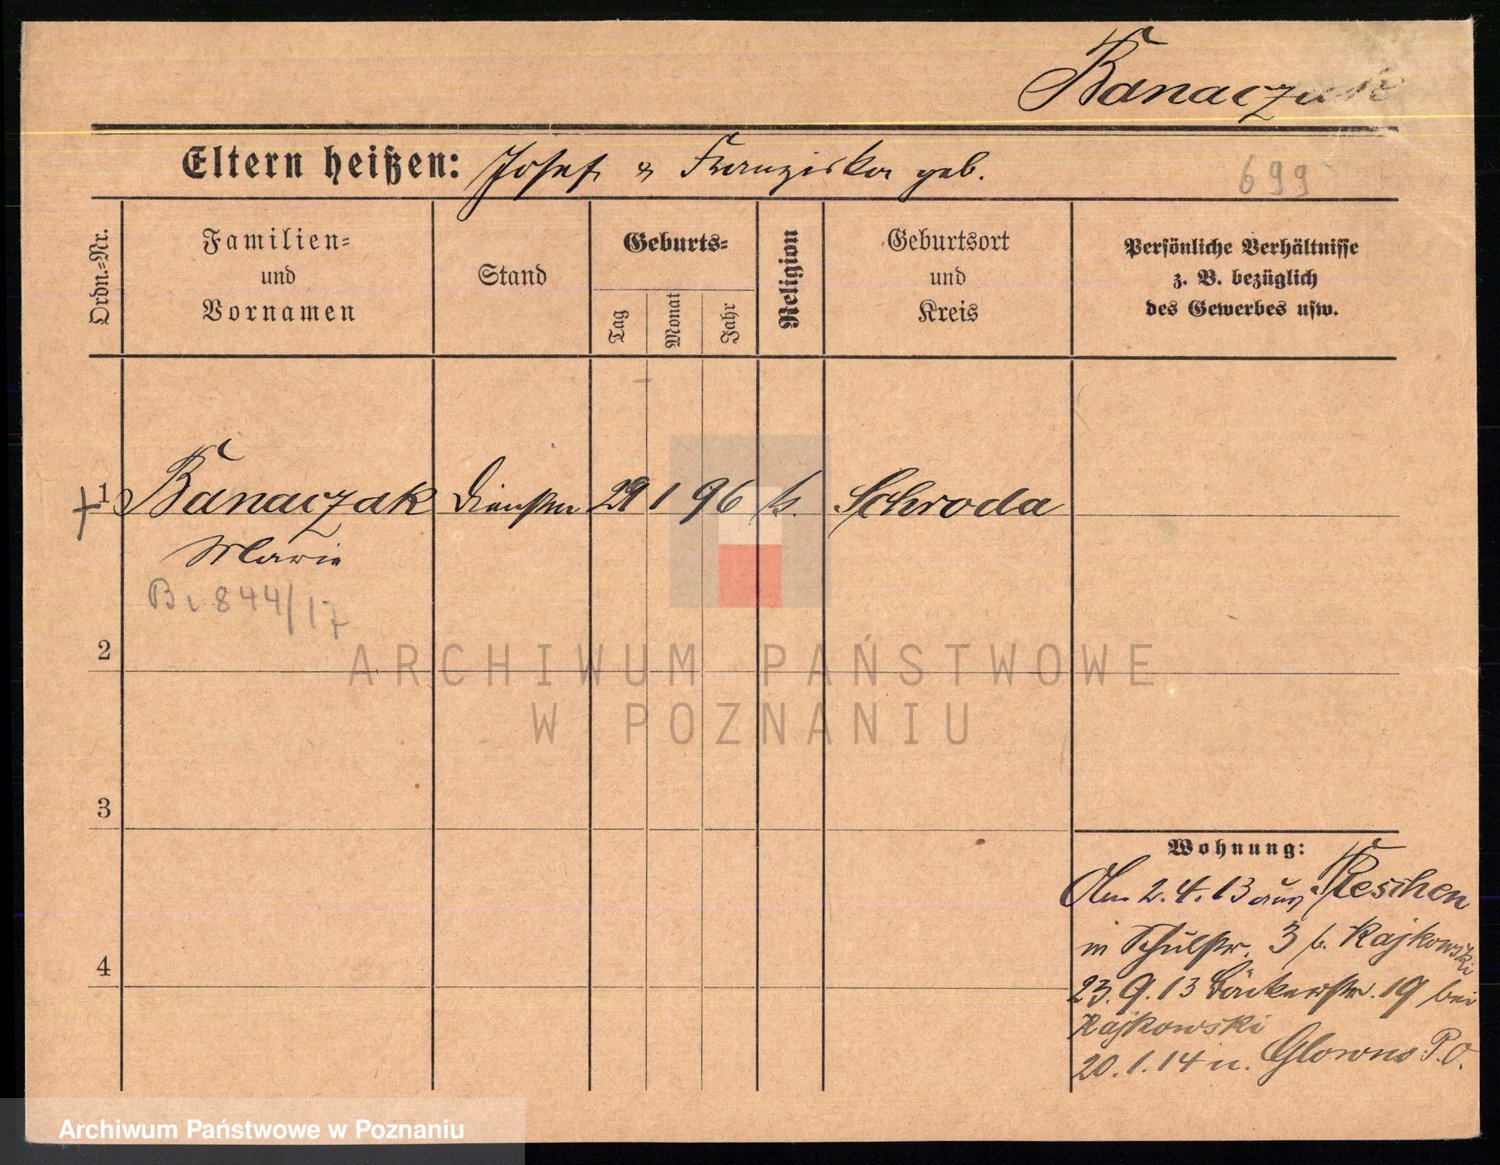 Banaczak
Eltern heißen: Josef u Franziska geb.
699
Ordn.-Nr.
Familien-
und
Vornamen
Stand
Geburts-
Tag
Monat
Jahr
Religion
Geburtsort
und
Kreis
Persönliche Verhältnisse
z. B. bezüglich
des Gewerbes usw.
1 Banaczak 29 1 96 k. Schroda
Marie
Br 844/17
2
ARCHIWUM PAŃSTWOWE
W POZNANIU
3
Wohnung:
Am 2.4.13 aus Pleschen
in Schulstr. 3 b. Rajkowski
4
23.9.13 Bäckerstr. 19 bei
Rajkowski
20.1.14 n. Glowno P.O.
Archiwum Państwowe w Poznaniu